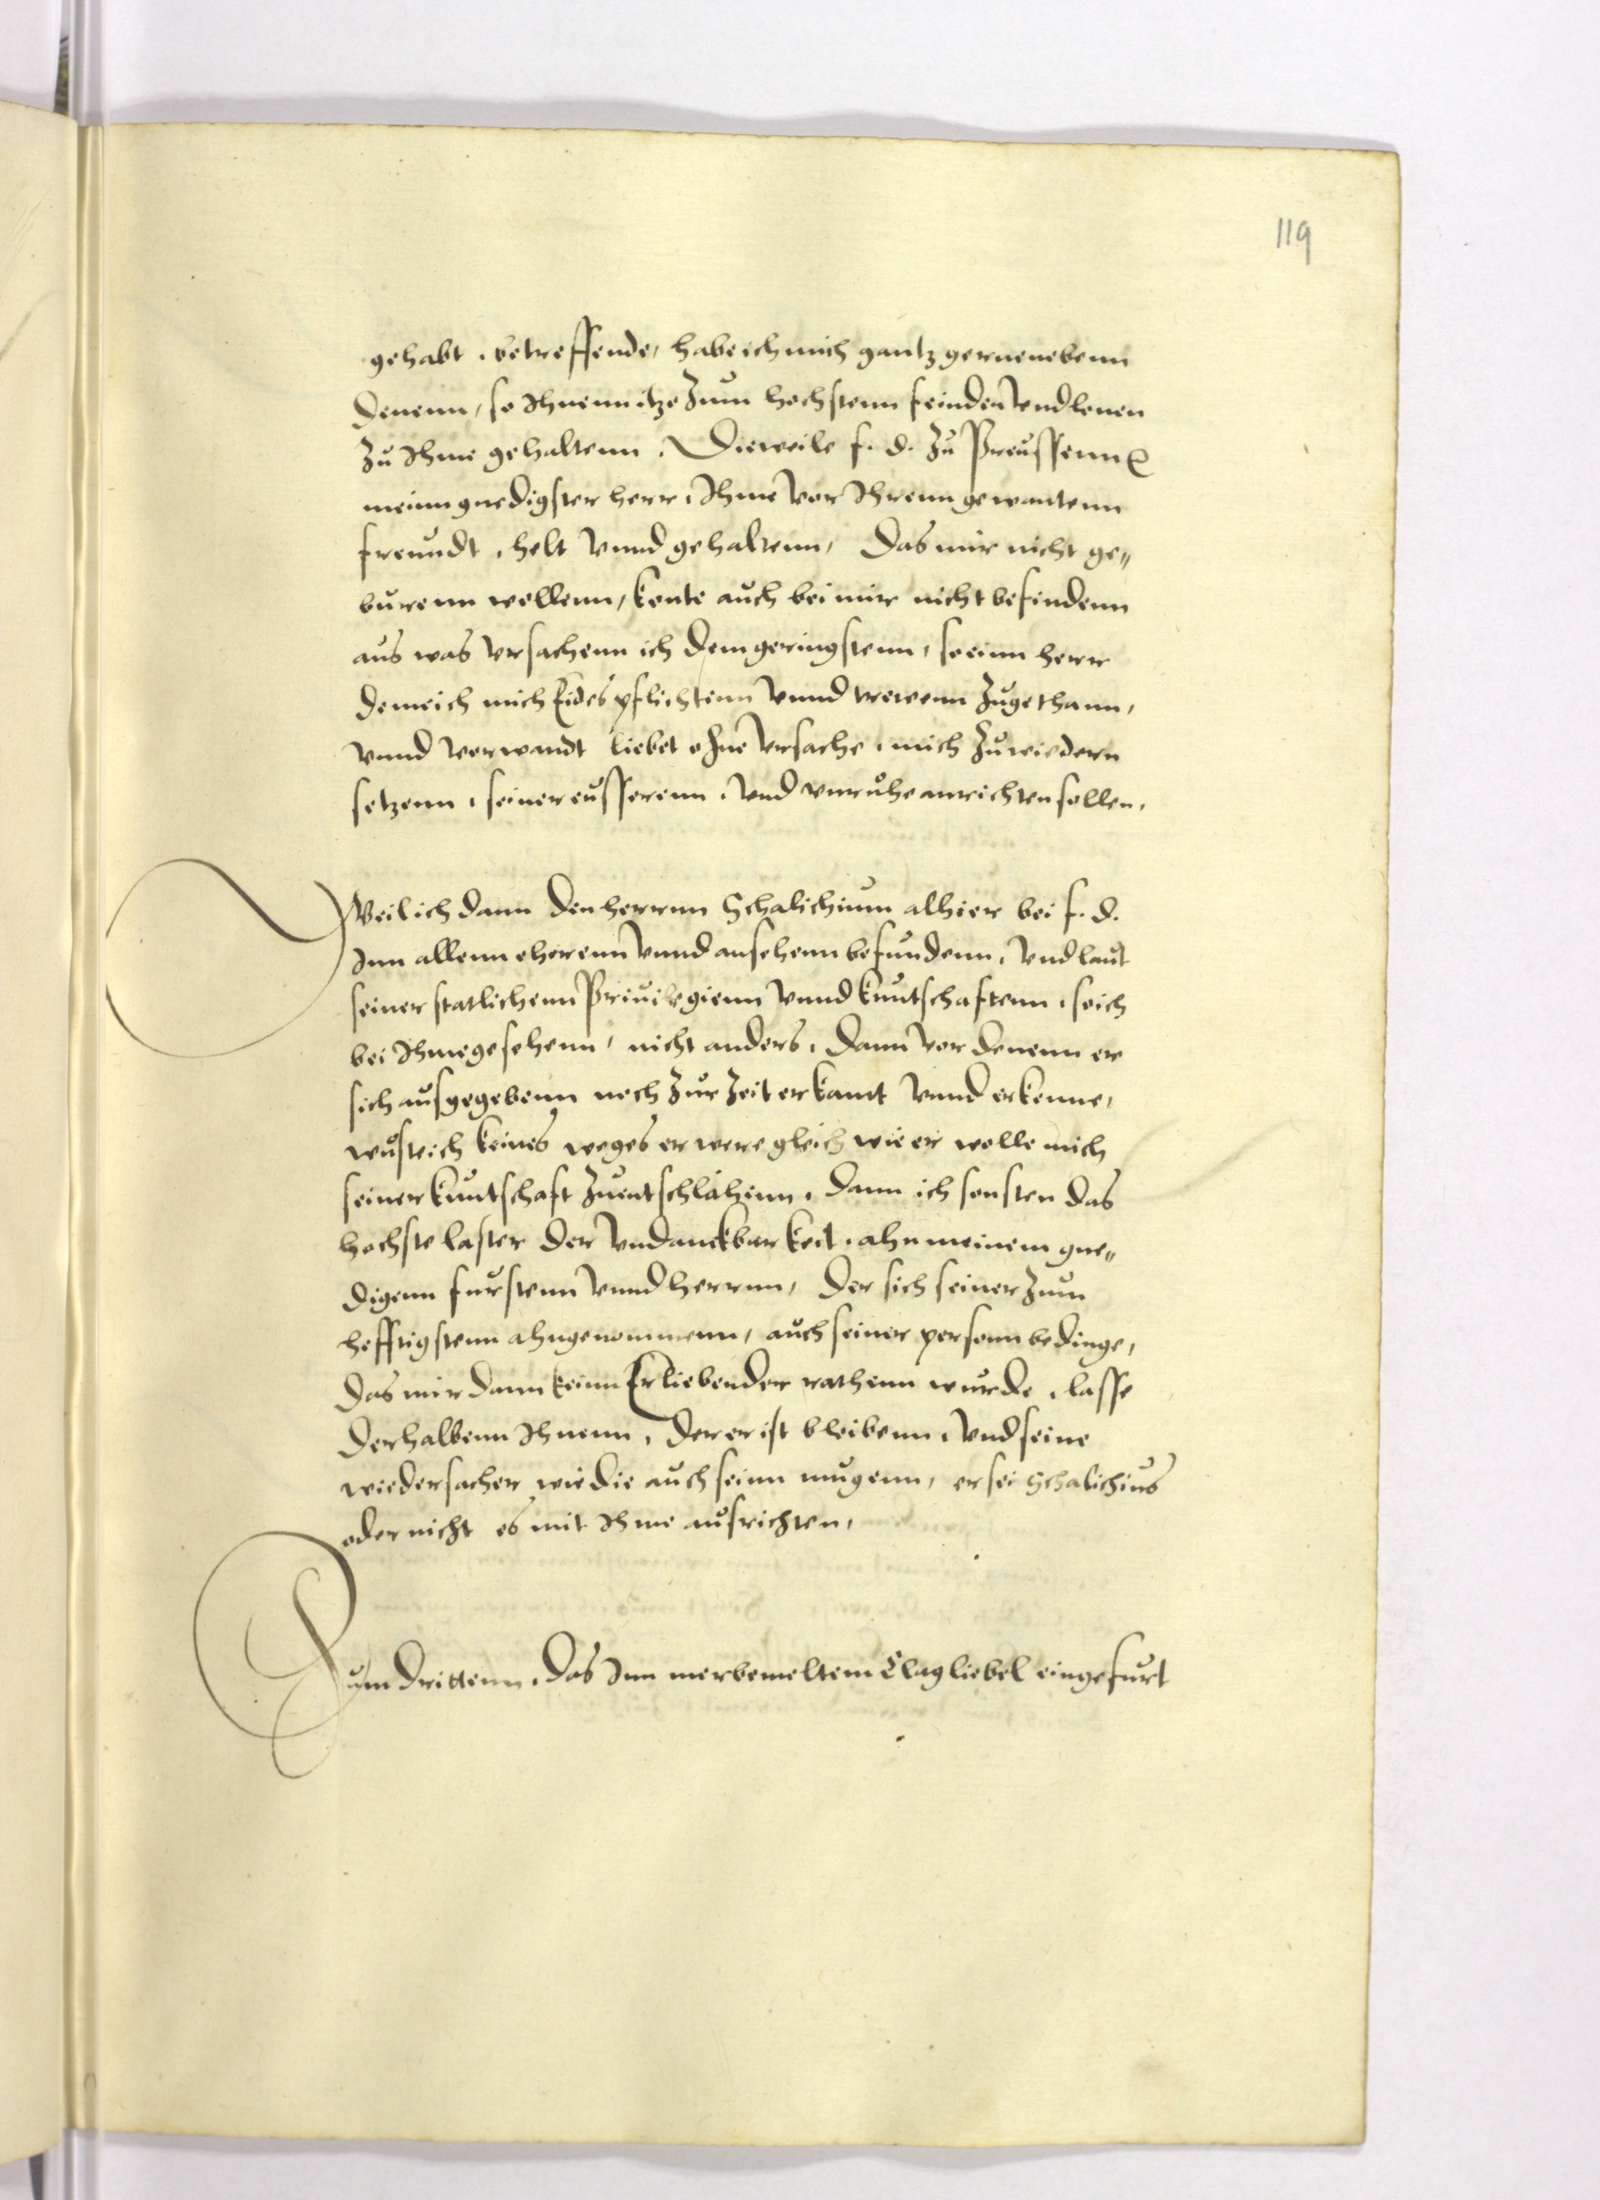 119
gehabt, betreffende, habe ich mich gantz gerne nebenn
denenn, so Ihnenn itzo zum hochstenn feinden Vnd
zu Ihme gehaltenn. Dieweile f. d. zu Preussenn
meinn gnedigster herr, Ihme Vor Ihrenn gewantenn
freundt, helt Vnnd gehaltenn, Das mir nicht ge„
burenn wollenn, konte auch bei mir nicht befindenn
aus was Vrsachenn ich dem geringstenn, so einn herr
deme ich mich Eides pflichtenn Vnnd trewenn zugethann,
Vnnd Verwandt liebet ohne Vrsache, mich zuwiedern
setzenn, seiner eussserenn, Vnd vnruhe anrichten sollen,
Weil ich dann den herrnn Schalichium alhier bei f. d.
Inn allenn eherenn Vnnd ansehenn befundenn, Vnd laut
seiner statlichenn Priuilegienn Vnnd kuntschaftenn, so ich
bei Ihme gesehenn, nicht anders, dann Vor denenn er
sich ausgegebenn noch zur zeit erkant Vnnd erkenne,
wuste ich keines weges er were gleich wie er wolle mich
seiner kuntschaft zuentschlahenn, dann ich sonsten das
hochste laster der Vndanckbarkeit, ahn meinem gne„
digenn furstenn Vnnd herrnn, der sich seiner zum
hefftigstenn ahngenommenn, auch seiner personn bedinge,
das mir dann keinn Erliebender rathenn wurde, lasse
derhalbenn Ihnenn, der er ist bleibenn, Vnd seine
wiedersacher wie die auch seinn mugenn, er sei Schalichius
oder nicht es mit Ihme ausrichten,
Zum drittenn, das Inn merbemeltem Clagliebel eingefurt